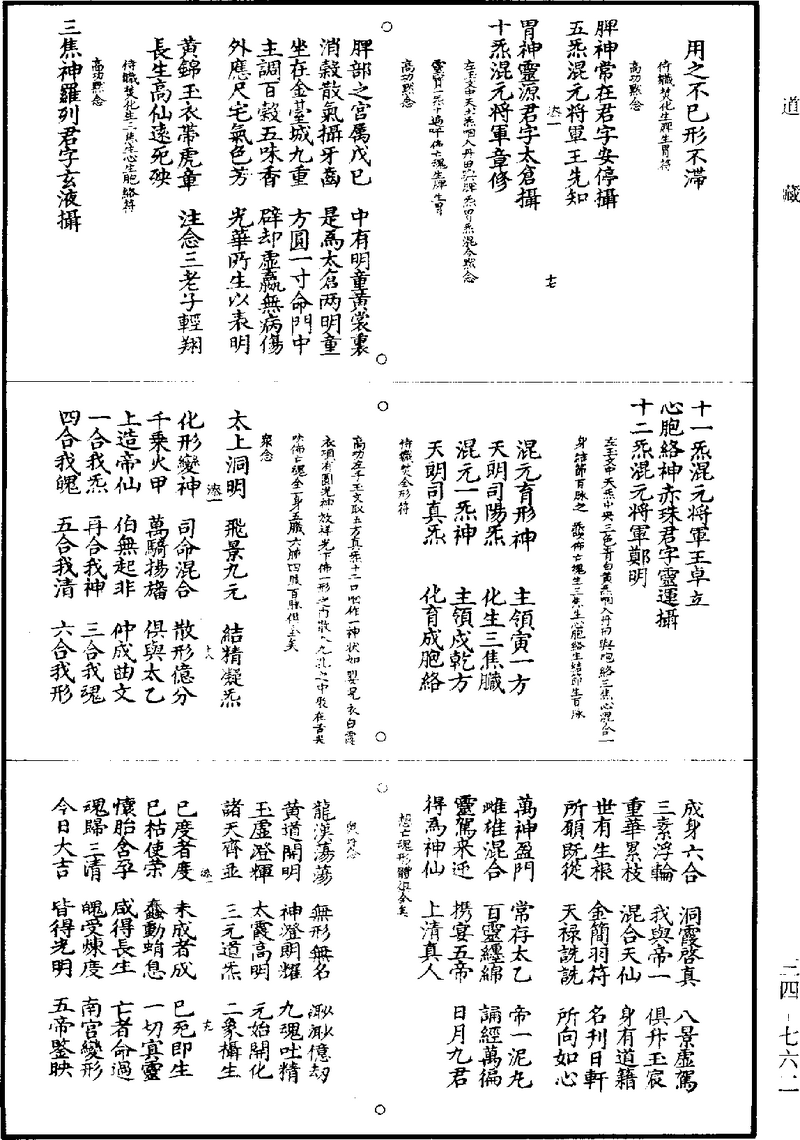 道藏
用之不已形不滯
侍職焚化生脾生胃符
高功默念
脾神常在君字安停攝
五炁混元將軍王先知
胃神靈源君字太倉攝
十炁混元將軍章修
高功默念
十七
脾部之宮屬戊巳　中有明童黃裳裏
消穀散氣攝牙齒　是為太倉兩明童
坐在金臺城九重　方圓一寸命門中
主調百穀五味香　辟却虛羸無病傷
外應尺宅氣色芳　光華所生以表明
黃錦玉衣帶虎章　注念三老子輕翔
長生高仙遠死殃
侍職焚化生三焦生心生胞絡符
高功默念
三焦神羅列君字玄液攝
十一炁混元將軍王卓立
心胞絡神赤珠君字靈運攝
十二炁混元將軍鄭明
混元育形神　主領寅一方
天朗司陽炁　化生三焦臟
混元一炁神　主領戌乾方
天朗司真炁　化育成胞絡
侍職焚全形符
眾念
太上洞明　飛景九元　結精凝炁
十八
化形變神　司命混合　散形億分
千乘火甲　萬騎揚旛　俱與太乙
上造帝仙　伯無起非　仲成曲文
一合我炁　再合我神　三合我魂
四合我魄　五合我清　六合我形
成身六合　洞霞啓真　八景虛駕
三素浮輪　我與帝一　俱升玉宸
重華累枝　混合天仙　身有道籍
世有生根　金簡羽符　名刋日軒
所願既從　天祿詵詵　所向如心
萬神盈門　常存太乙　帝一泥丸
雌雄混合　百靈纏綿　誦經萬徧
靈駕來迎　携宴五帝　日月九君
得為神仙　上清真人
想亡魂形體俱全矣
龍漢蕩蕩　無形無名　渺渺億劫
黃道開明　神澄朗耀　九魂吐精
玉虛澄輝　太霞高明　元始開化
諸天齊並　三元道炁　二象攝生
十九
已度者度　未成者成　已死即生
已枯使榮　蠢動蛸息　一切冥靈
懷胎含孕　咸得長生　亡者命過
魂歸三清　魄受煉度　南宮變形
今日大吉　皆得光明　五帝鑒映
三四—七六二